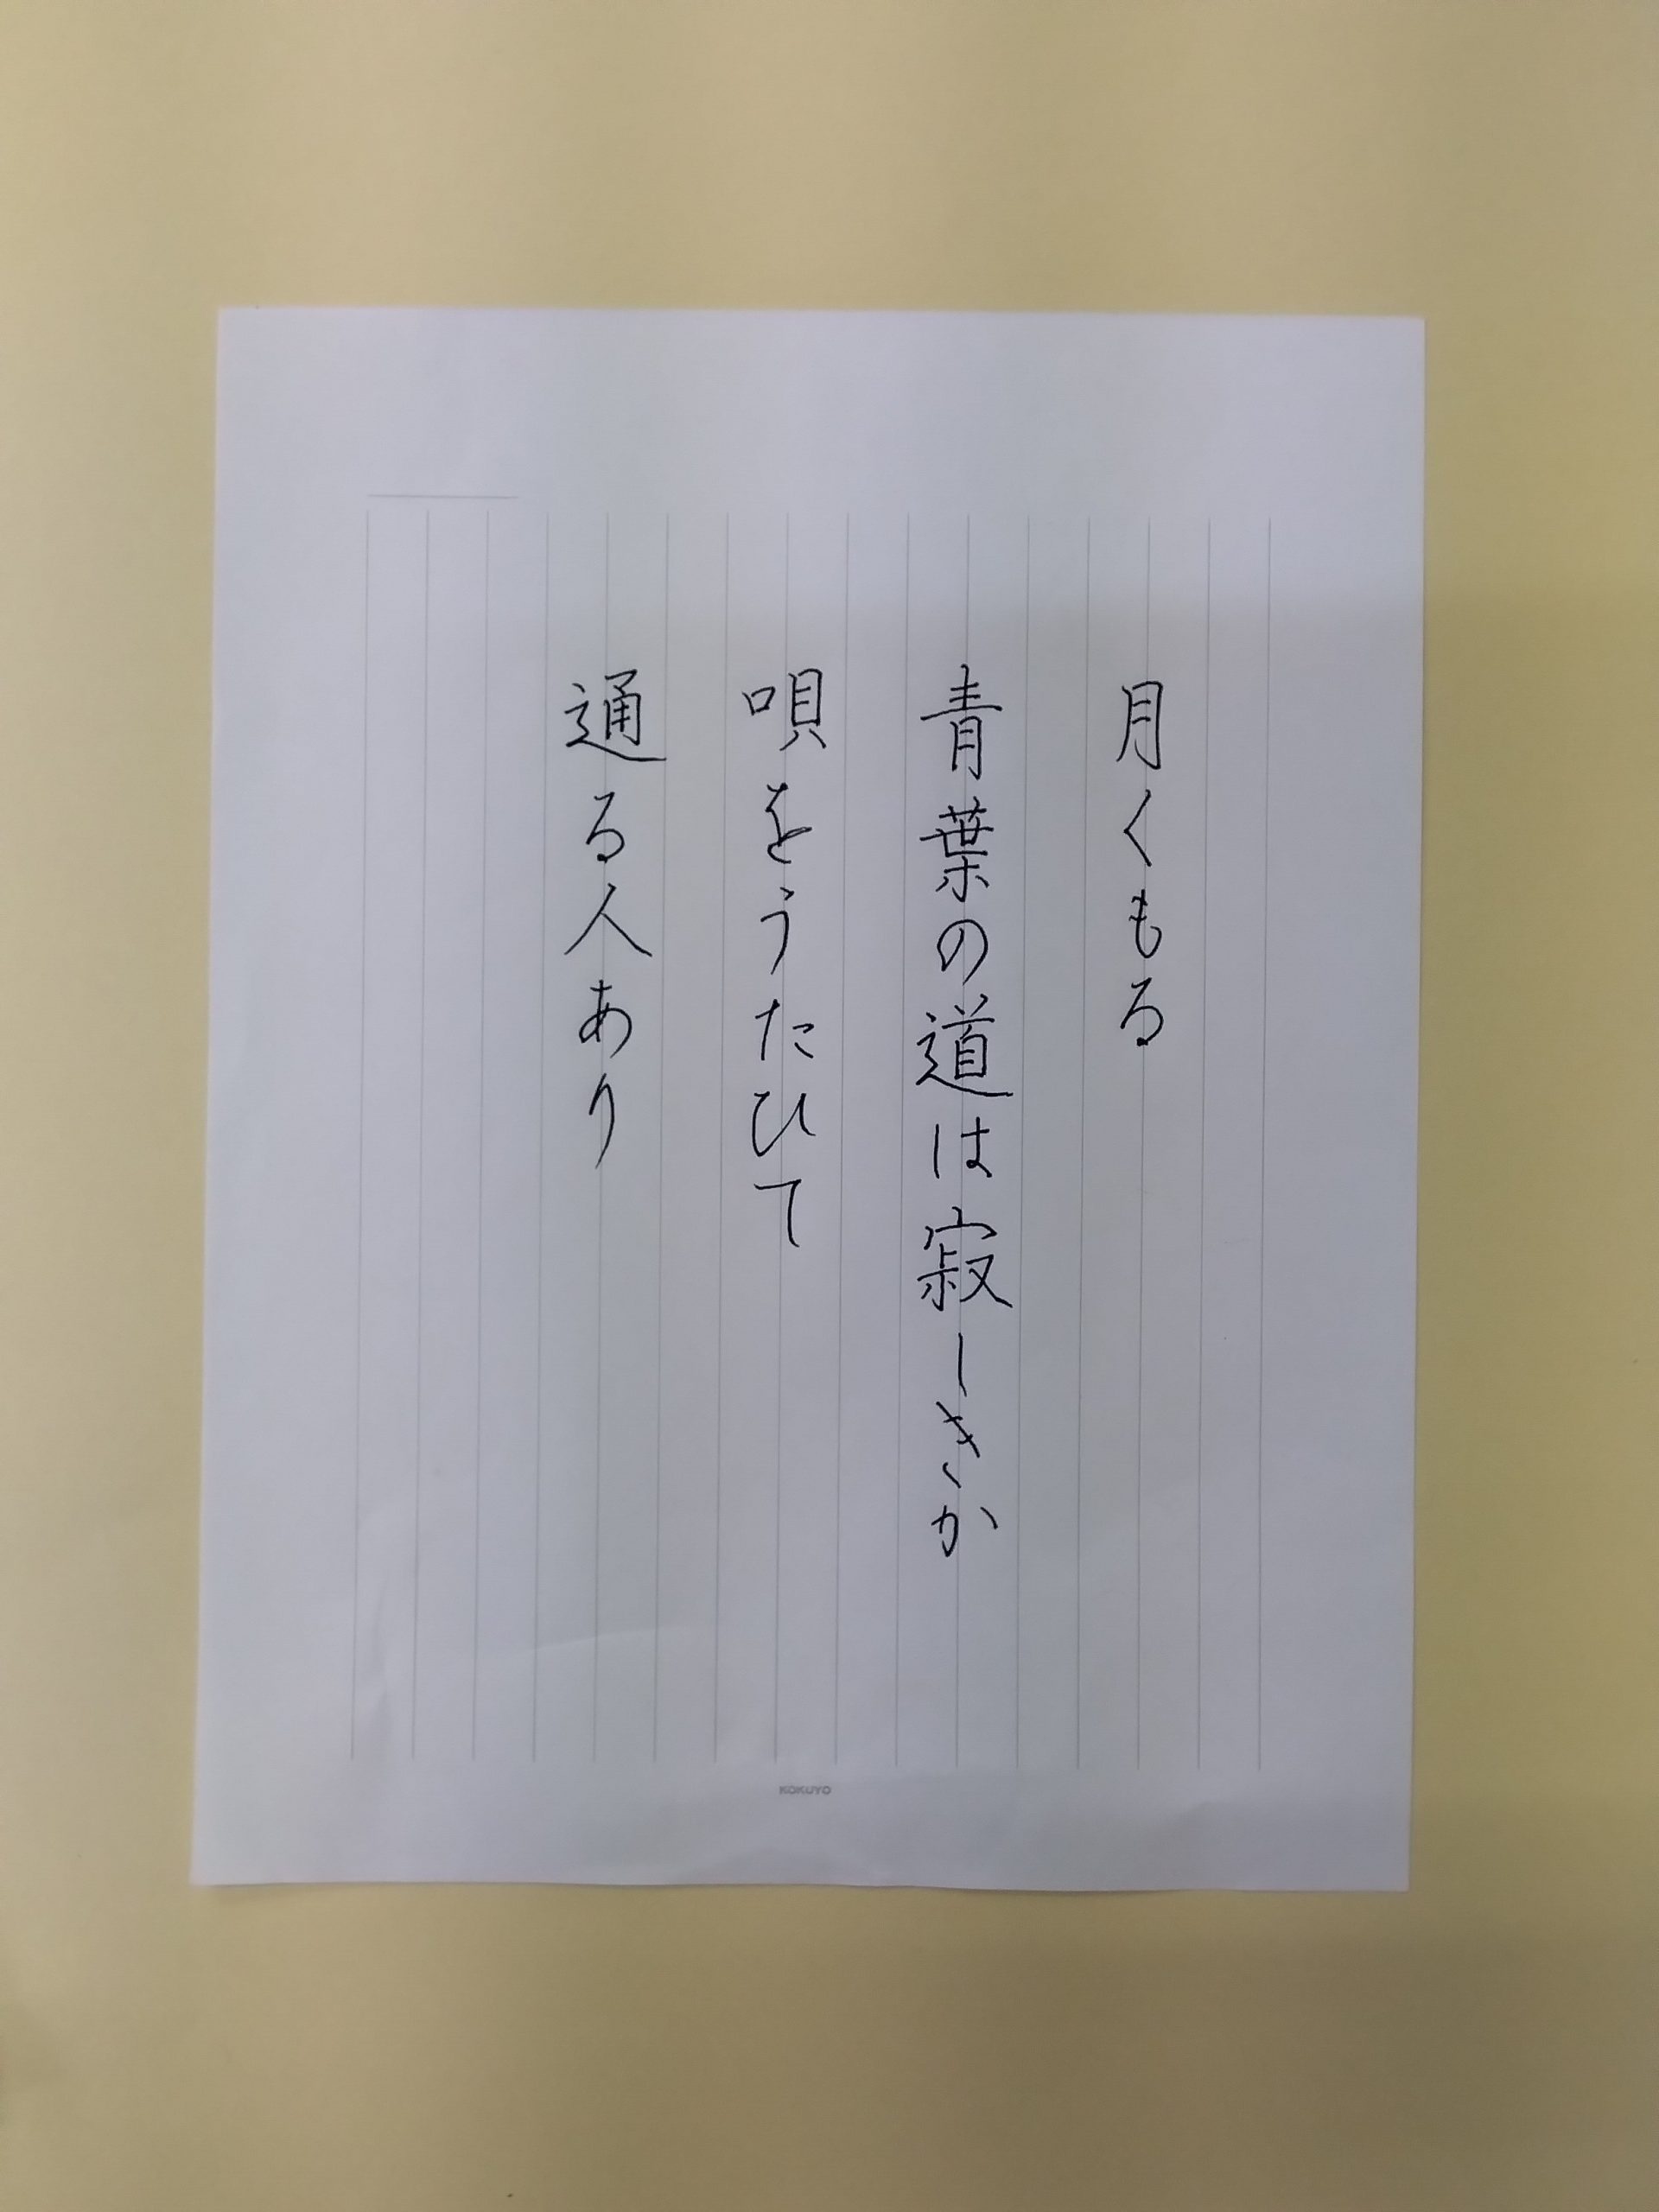 月くもる
青葉の道は寂しきか
唄をうたひて
通る人あり
KOKUYO